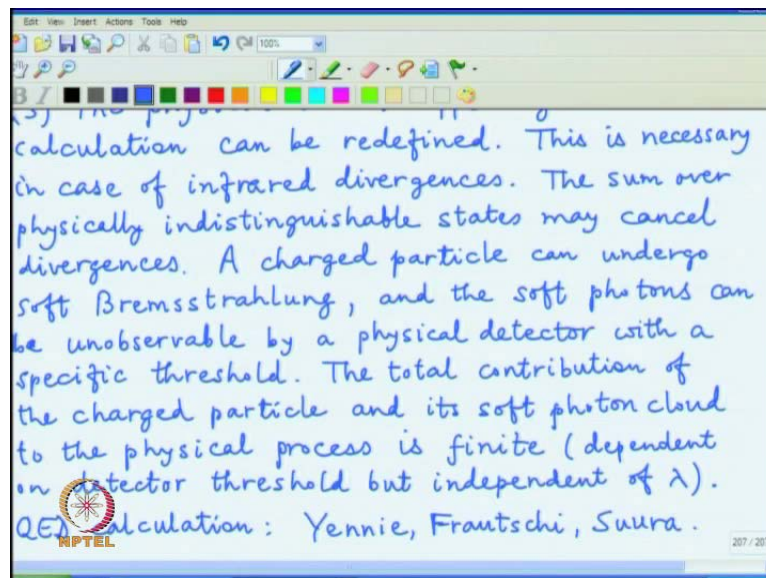 Edit View Insert Actions Tools Help
100%
B I
calculation can be redefined. This is necessary
in case of infrared divergences. The sum over
physically indistinguishable states may cancel
divergences. A charged particle can undergo
soft Bremsstrahlung, and the soft photons can
be unobservable by a physical detector with a
specific threshold. The total contribution of
the charged particle and its soft photon cloud
to the physical process is finite (dependent
on detector threshold but independent of λ).
QED calculation: Yennie, Frautschi, Suura.
NPTEL
207 / 207